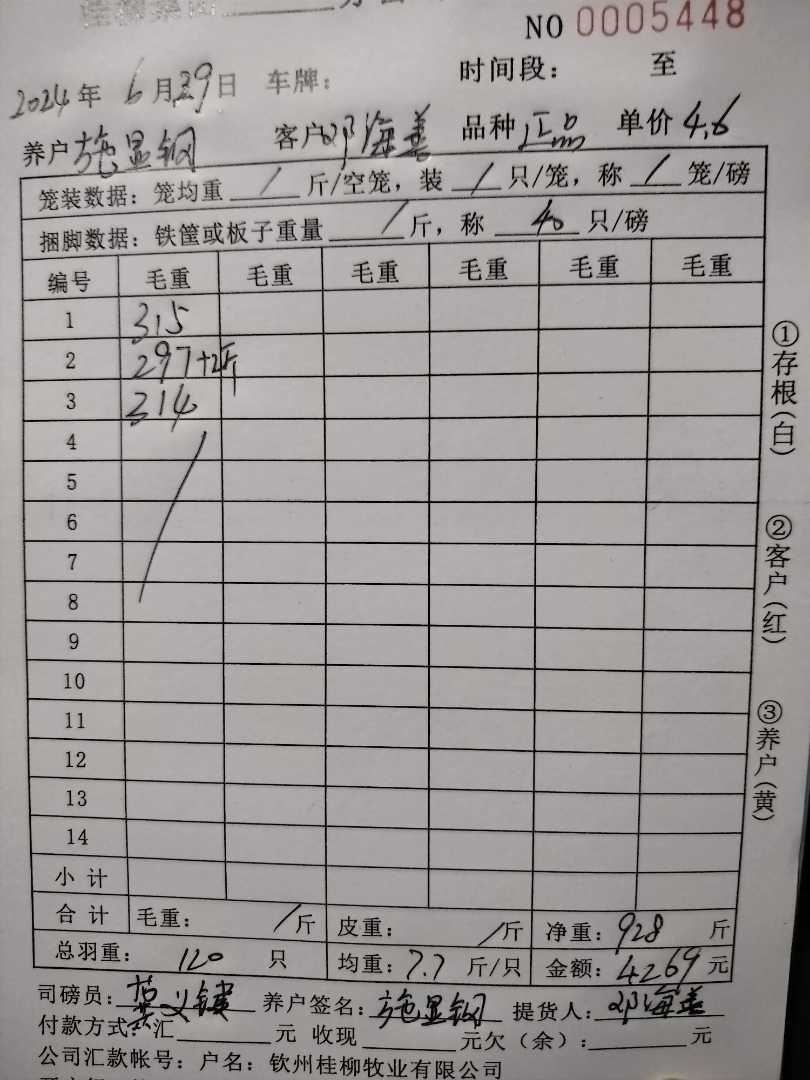 NO 0005448
2024年 6月29日 车牌： 时间段： 至
养户 施显钢 客户 邓海善 品种 正品 单价 4.6
笼装数据：笼均重 / 斤/空笼，装 / 只/笼，称 / 笼/磅
捆脚数据：铁筐或板子重量 / 斤，称 40 只/磅
编号 毛重 毛重 毛重 毛重 毛重 毛重
1 315
2 297+2斤
3 314
4
5
6
7
8
9
10
11
12
13
14
小计
合计 毛重： / 斤 皮重： / 斤 净重：928 斤
总羽重： 120 只 均重：7.7 斤/只 金额：4269 元
司磅员： 义镇 养户签名：施显钢 提货人：邓海善
付款方式：汇 元 收现 元欠（余）： 元
公司汇款帐号：户名：钦州桂柳牧业有限公司
①存根(白)
②客户(红)
③养户(黄)